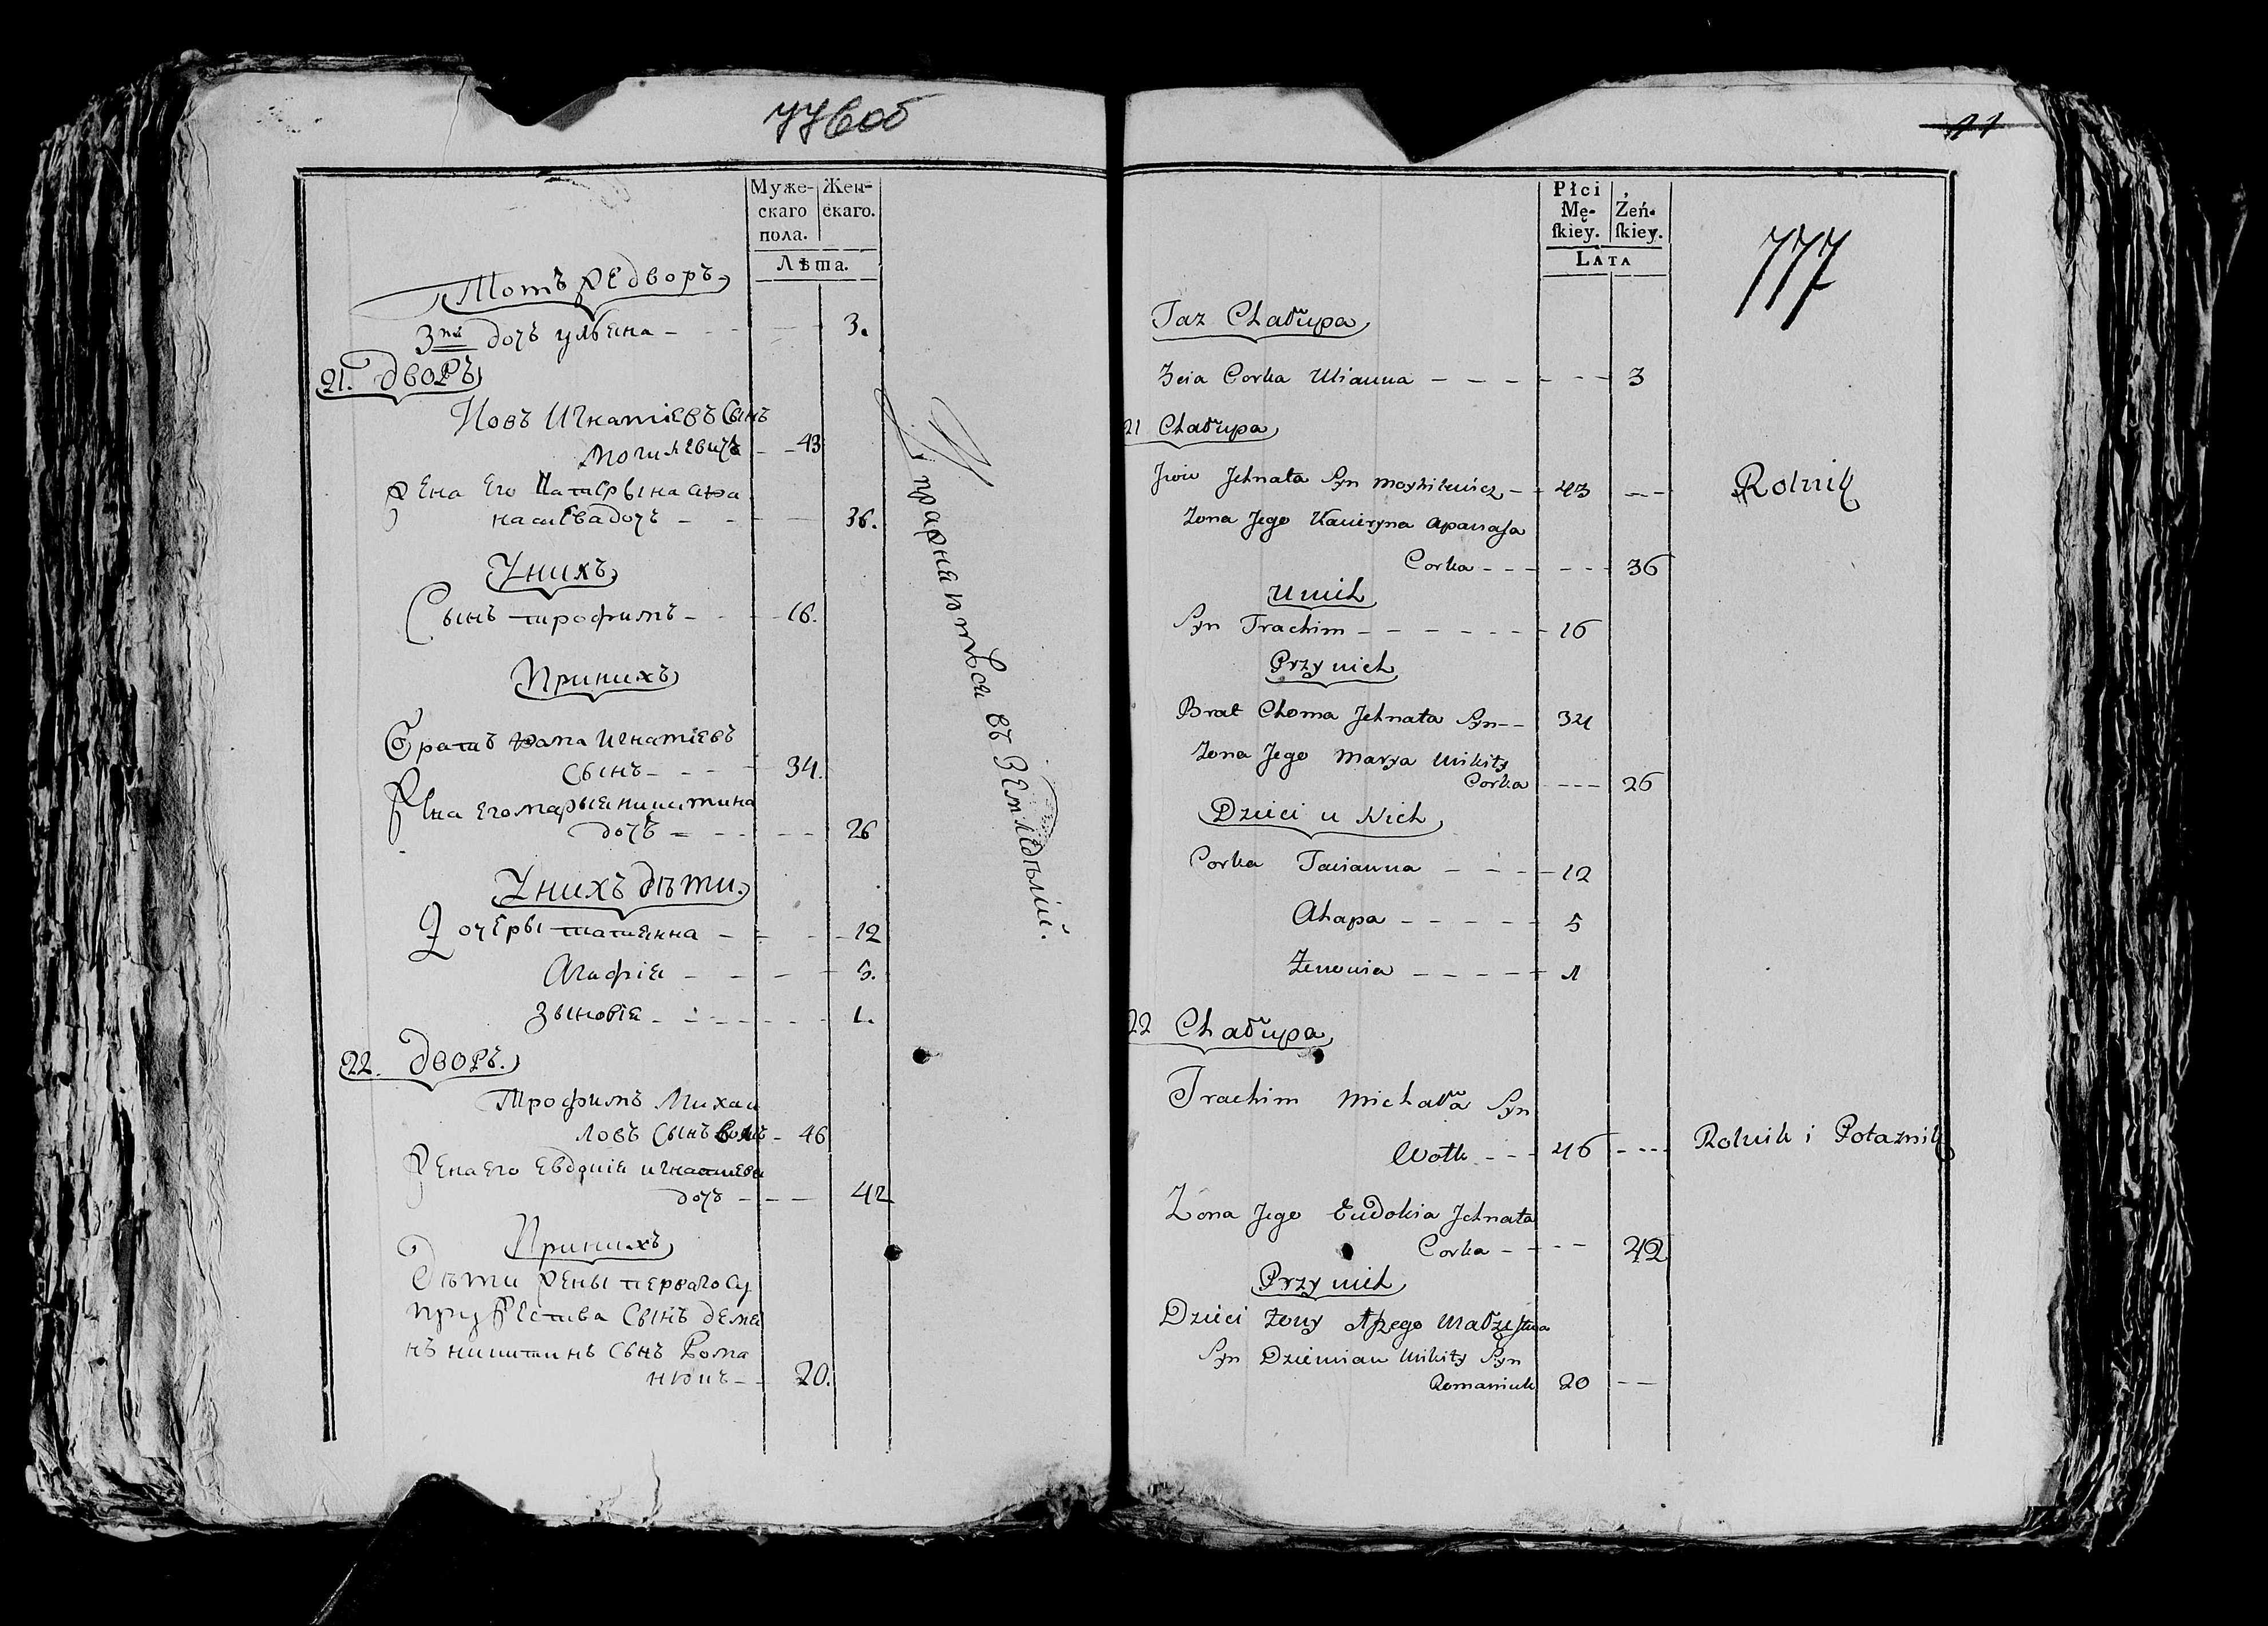 776об
Муже- Жен-
скаго скаго.
пола.
Лѣта.
Тотъ же дворъ
3тя дочь улѣяна - - - 3.
21. Дворъ
Иовъ Игнатіевъ Сынъ
Могилевичъ - - 43
Жена Его Катерына афа
насіева дочь - - - 36.
У нихъ
Сынъ трофимъ - - - 16.
При нихъ
Братъ фома Игнатіевъ
Сынъ - - - 34.
Жена его марья никитина
дочь - - - 26
У нихъ дѣти
Дочеры татіянна - - - 12
Агафія - - - 5.
Зыновія - - - 1.
22. Дворъ.
Трофимъ Михаи
ловъ Сынъ - 46
Жена его Евдокія игнатіева
дочь - - - 42
При нихъ
Дѣти жены перваго су
пружества Сынъ демя
нъ никитинъ Сынъ Рома
нюкъ - - 20.
Упражняются въ Земледѣліи.
11
Płci
Mę- Żeń-
skiey. skiey.
LATA
777
Taż Chałupa
3cia Corka Ulianna - - - - - - 3
21 Chałupa
Jwie Jchnata Syn Moyhilewicz - 43 - - Rolnik
Żona Jego Kateryna Apanasa
Corka - - - - - - 36
U nich
Syn Trachim - - - - - - 16
Przy nich
Brat Choma Jchnata Syn - - 34
Żona Jego Marya Mikity
Corka - - - 26
Dzieci u Nich
Corka Tacianna - - - 12
Ahapa - - - - - 5
Zenowia - - - - - 1
22 Chałupa
Trachim Michała Syn
Wołk - - - 46 - - - Rolnik i Potaznik
Żona Jego Eudokia Jchnata
Corka - - - - 42
Przy nich
Dzieci Żony Małżestwa
Syn Dziemian Mikity Syn
Romaniuk 20 - -